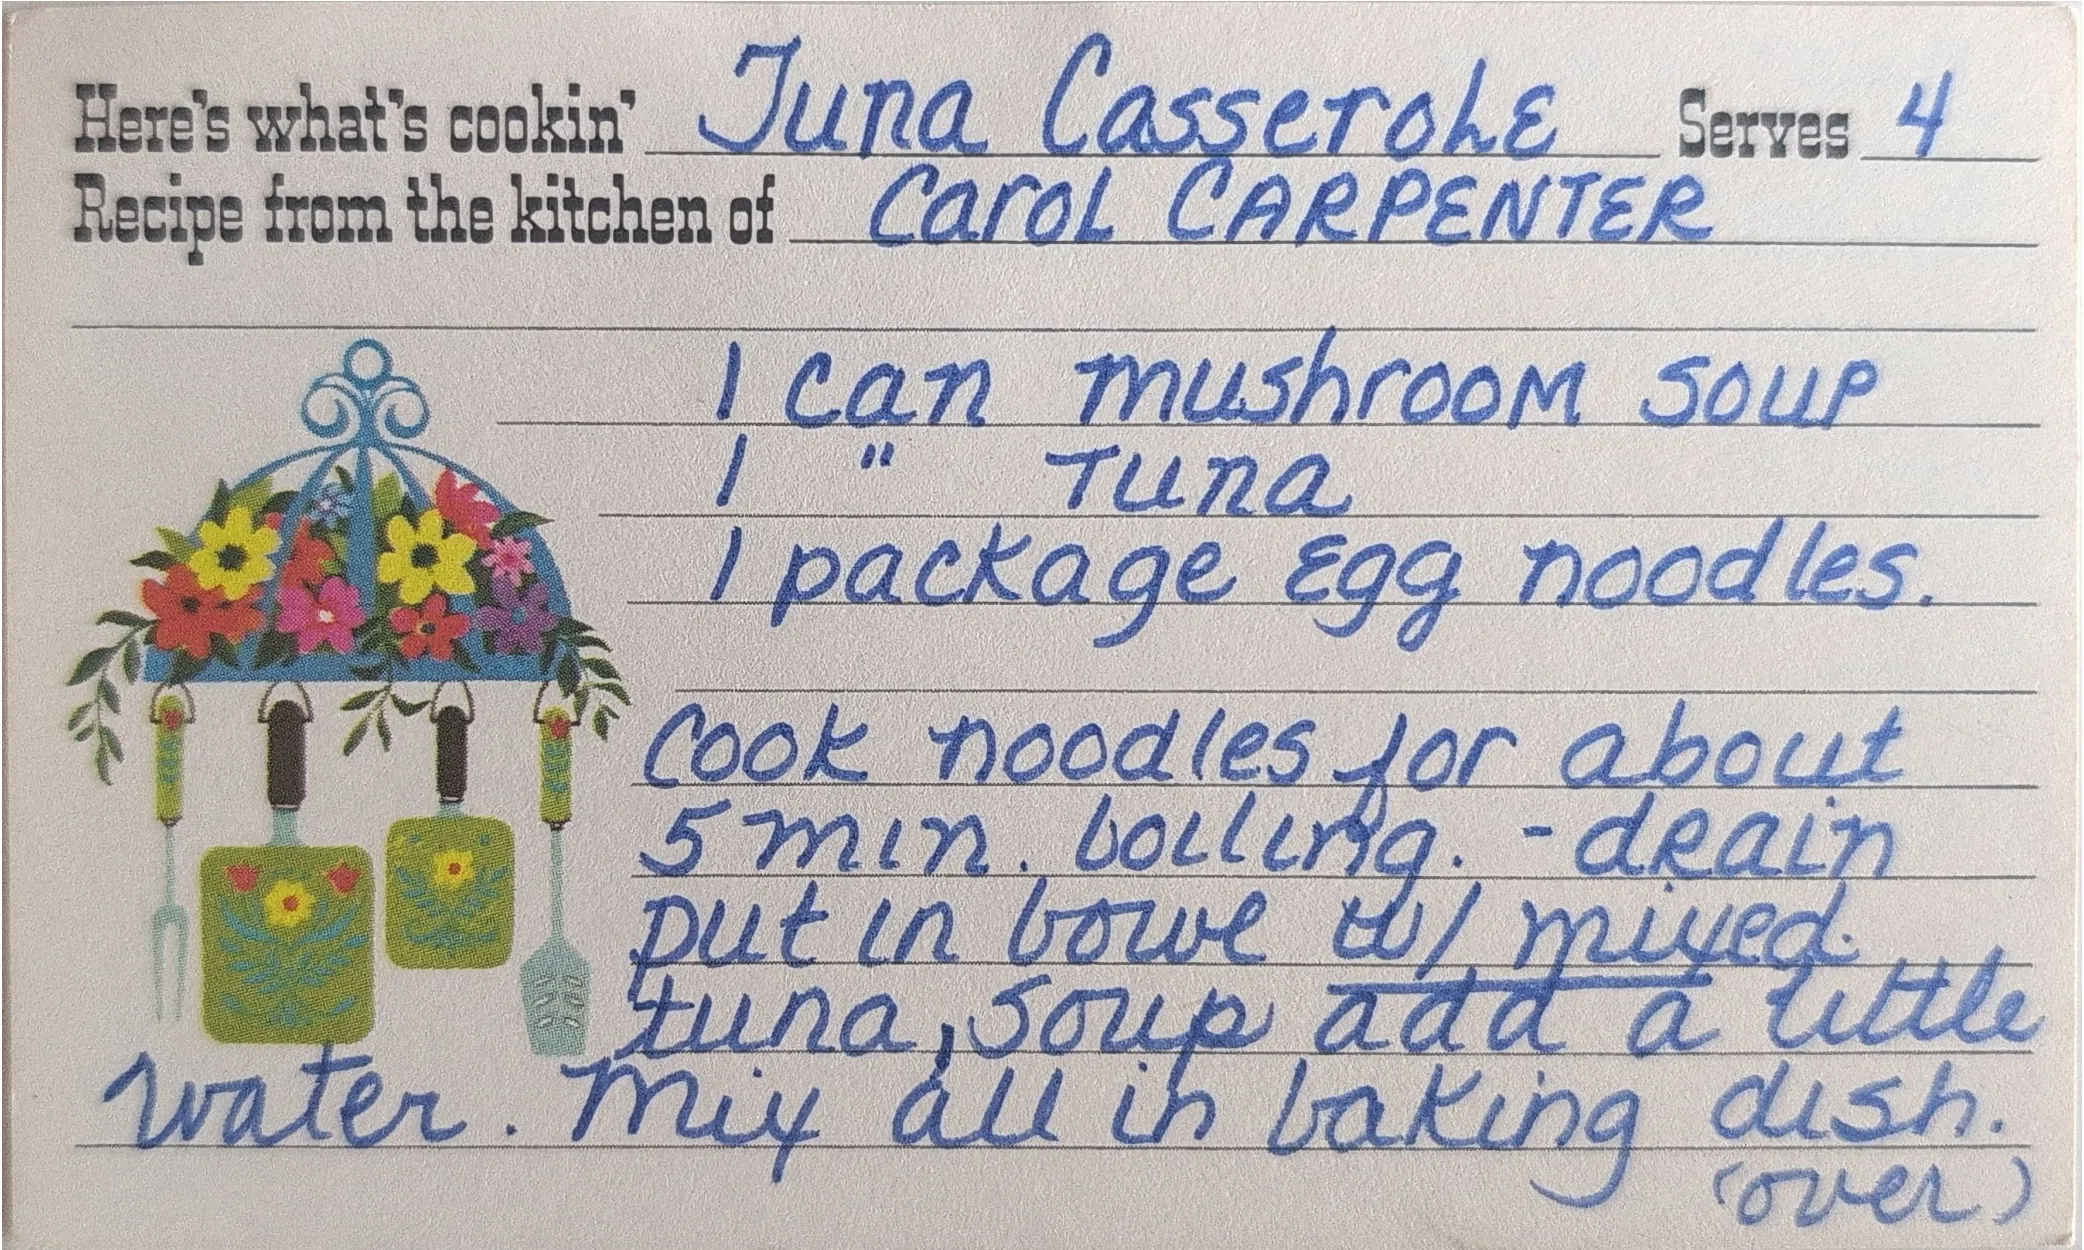 Here's what's cookin' Tuna Casserole Serves 4
Recipe from the kitchen of Carol CARPENTER
1 can mushroom soup
1 " Tuna
1 package Egg noodles.
Cook noodles for about
5 min. boiling. - drain
put in bowl w/ mixed
tuna, soup add a little
water. Mix all in baking dish.
(over)